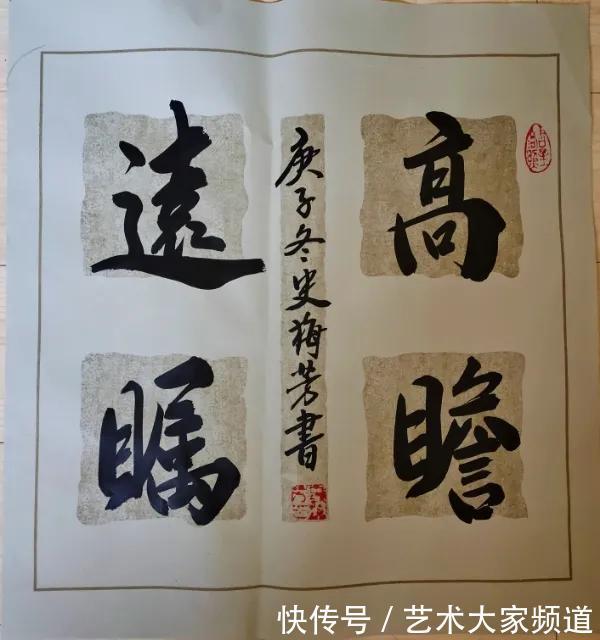 高瞻
遠瞩
庚子冬史梅芳書
快传号 / 艺术大家频道